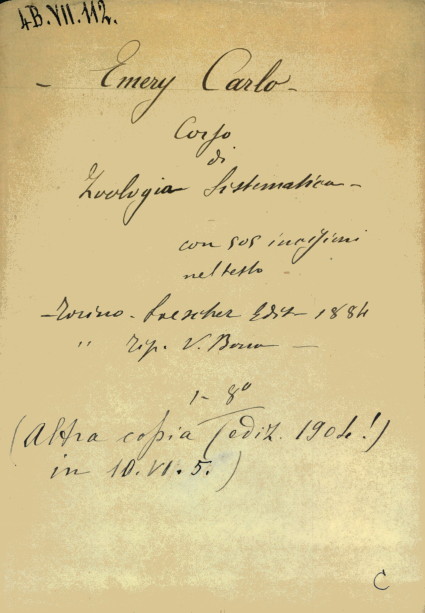 4B.VII.112.
Emery Carlo -
Corso
di
Zoologia Sistematica -
con 505 incisioni
nel testo
- Torino - Loescher Edit. 1884
" Tip. V. Bona -
1 - 8°
(Altra copia (ediz. 1904!)
in 10.VI.5.)
C